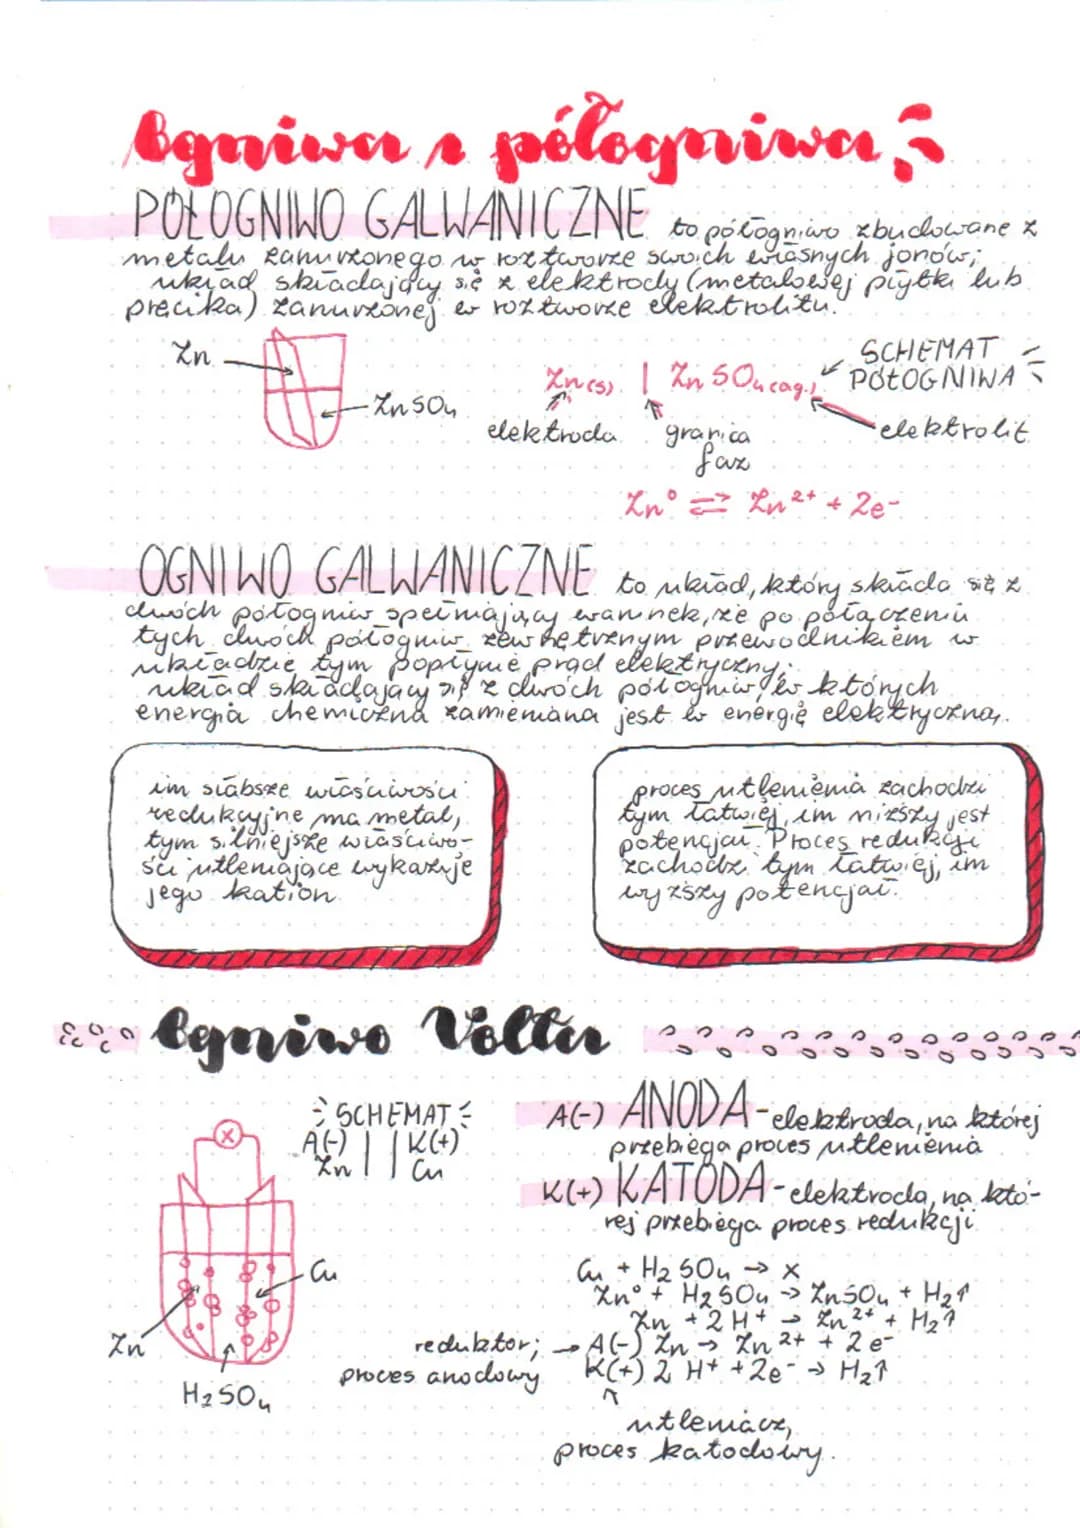 Ogniwa i półogniwa
PÓŁOGNIWO GALWANICZNE to półogniwo zbudowane z
metalu zanurzonego w roztworze swoich własnych jonów;
układ składający się z elektrody (metalowej płytki lub
pręcika) zanurzonej w roztworze elektrolitu.
Zn
ZnSO4
Zn(s) | ZnSO4(aq.)
SCHEMAT
PÓŁOGNIWA
elektroda
granica
faz
elektrolit
Zn° ⇄ Zn²⁺ + 2e⁻
OGNIWO GALWANICZNE to układ, który składa się z
dwóch półogniw spełniający warunek, że po połączeniu
tych dwóch półogniw zewnętrznym przewodnikiem w
układzie tym popłynie prąd elektryczny;
układ składający się z dwóch półogniw, w których
energia chemiczna zamieniana jest w energię elektryczną.
im słabsze właściwości
redukcyjne ma metal,
tym silniejsze właściwo-
ści utleniające wykazuje
jego kation
proces utlenienia zachodzi
tym łatwiej, im niższy jest
potencjał. Proces redukcji
zachodzi tym łatwiej, im
wyższy potencjał.
Ogniwo Volta
SCHEMAT
A(-) | | K(+)
Zn Cu
Cu
Zn
H2SO4
A(-) ANODA - elektroda, na której
przebiega proces utlenienia
K(+) KATODA - elektroda, na któ-
rej przebiega proces redukcji
Cu + H2SO4 → x
Zn° + H2SO4 → ZnSO4 + H2↑
Zn + 2H⁺ → Zn²⁺ + H2↑
reduktor; → A(-) Zn → Zn²⁺ + 2e⁻
proces anodowy K(+) 2H⁺ + 2e⁻ → H2↑
utleniacz,
proces katodowy.